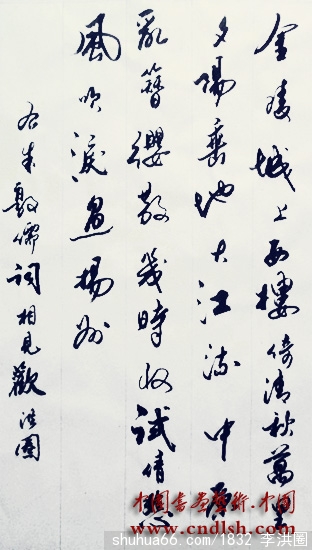 金陵城上西樓倚清秋萬里
夕陽垂地大江流中原
亂簪纓散幾時收試倩悲
風吹淚過揚州
右朱敦儒詞相見歡洪圈
中国書畫藝術.中国
www.cndlsh.com
shuhua66.com/1832 李洪圈